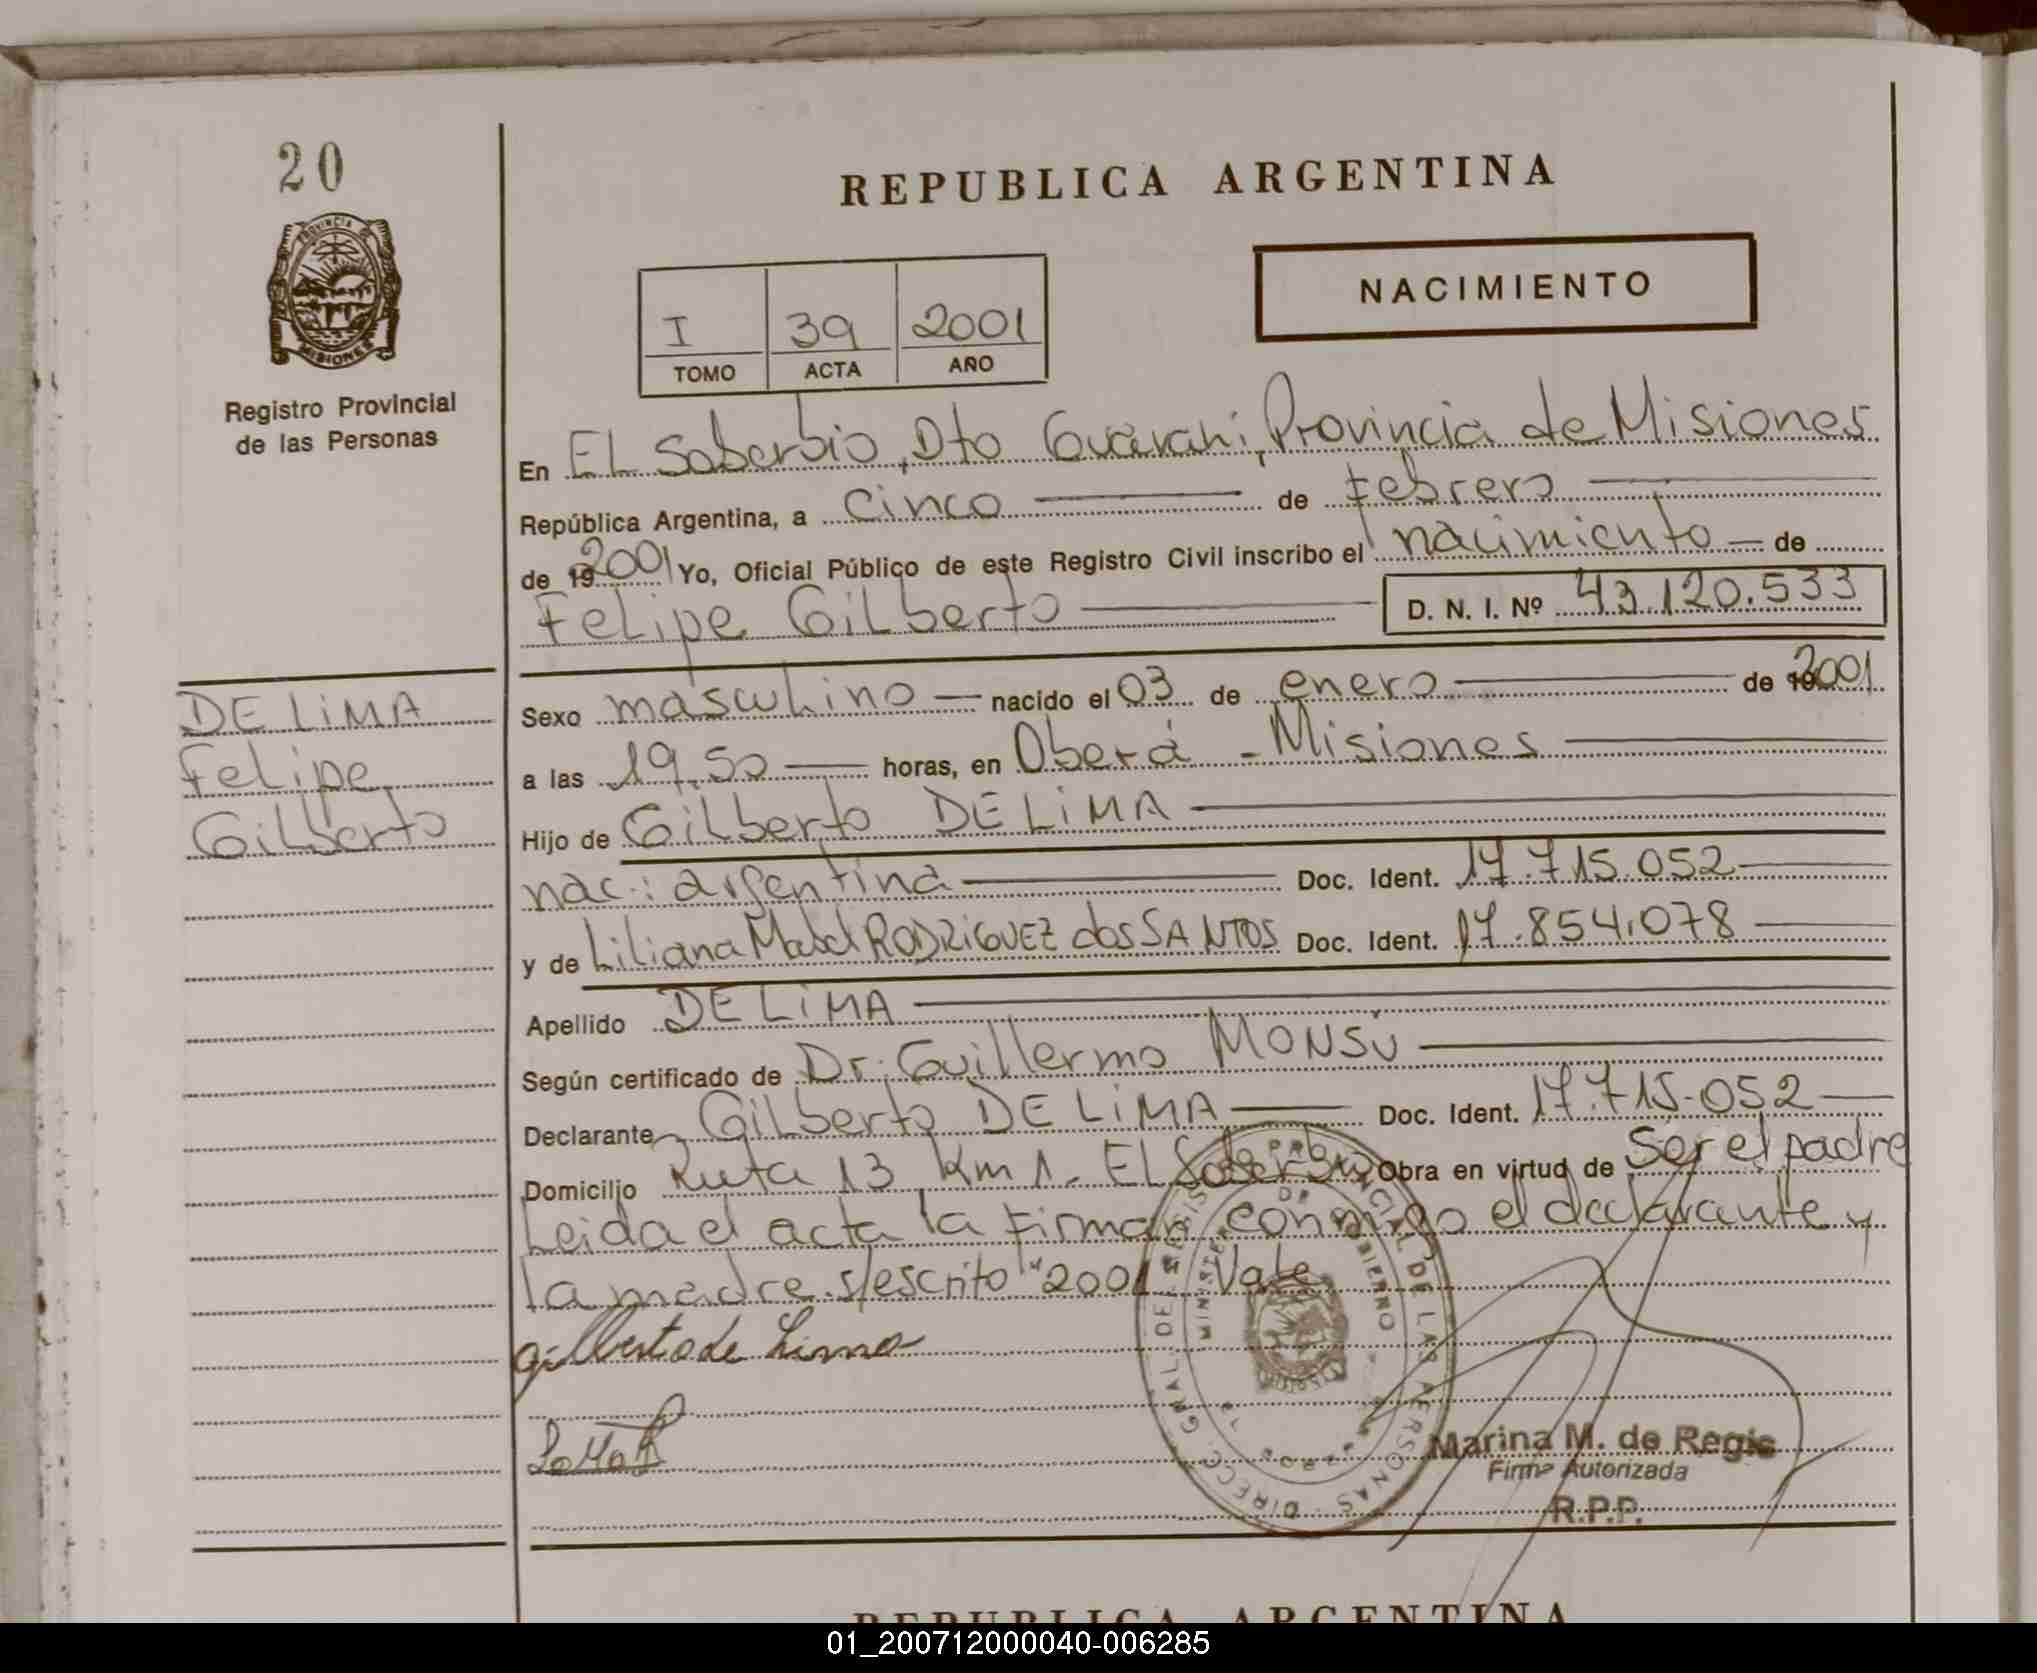 20
PROVINCIA DE
MISIONES
Registro Provincial
de las Personas
REPUBLICA ARGENTINA
NACIMIENTO
I 39 2001
TOMO ACTA AÑO
En EL Soberbio, Dto Guaraní, Provincia de Misiones
República Argentina, a cinco de febrero
de 192001 Yo, Oficial Público de este Registro Civil inscribo el nacimiento de
Felipe Gilberto D. N. I. Nº 43.120.533
DE LiMA
Felipe
Gilberto
Sexo masculino nacido el 03 de enero de 192001
a las 19,50 horas, en Oberá - Misiones
Hijo de Gilberto DE LiMA
nac.: argentina Doc. Ident. 17.715.052
y de Liliana Mabel RODRiGUEZ dos SANTOS Doc. Ident. 17.854.078
Apellido DE LiMA
Según certificado de Dr. Guillermo MONSÚ
Declarante Gilberto DE LiMA Doc. Ident. 17.715.052
Domicilio Ruta 13 Km 1. El Soberbio Obra en virtud de Ser el padre
Leida el acta la firman conmigo el declarante y
la madre. s/escrito "2001" Vale.
Gilberto de Lima
DIRECC. GRAL. DEL REGISTRO PROVINCIAL DE LAS PERSONAS
MINISTERIO DE GOBIERNO
Marina M. de Regis
Firma Autorizada
R.P.P.
REPUBLICA ARGENTINA
01_200712000040-006285